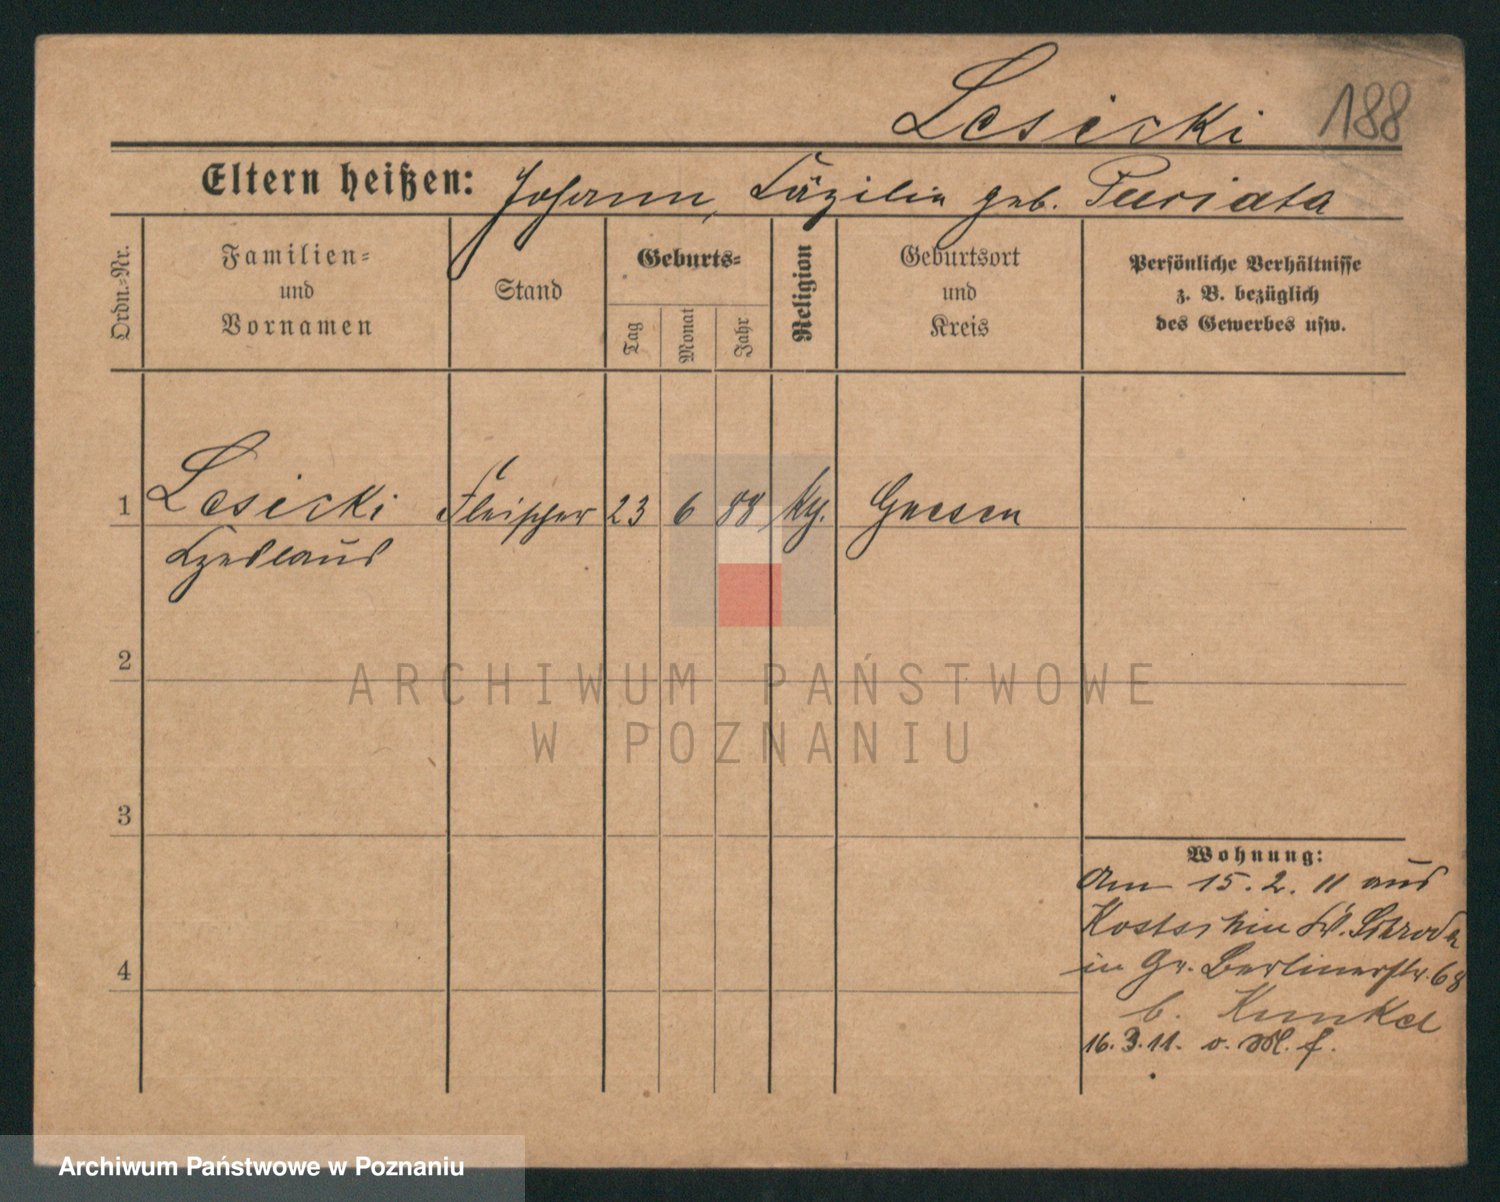 Lesicki 188
Eltern heißen: Johann, Cäzilie geb.
Ordn.-Nr.
Familien=
und
Vornamen
Stand
Geburts=
Tag
Monat
Jahr
Religion
Geburtsort
und
Kreis
Persönliche Verhältnisse
z. B. bezüglich
des Gewerbes usw.
1 Lesicki Fleischer 23 6 88 Gnesen
2
ARCHIWUM PAŃSTWOWE
W POZNANIU
3
4
Wohnung:
Am 15. 2. 11 aus
Kostschin Kr. Schroda
in Gr. Berlinerstr. 68
b. Kunkel
16. 3. 11. v.
Archiwum Państwowe w Poznaniu